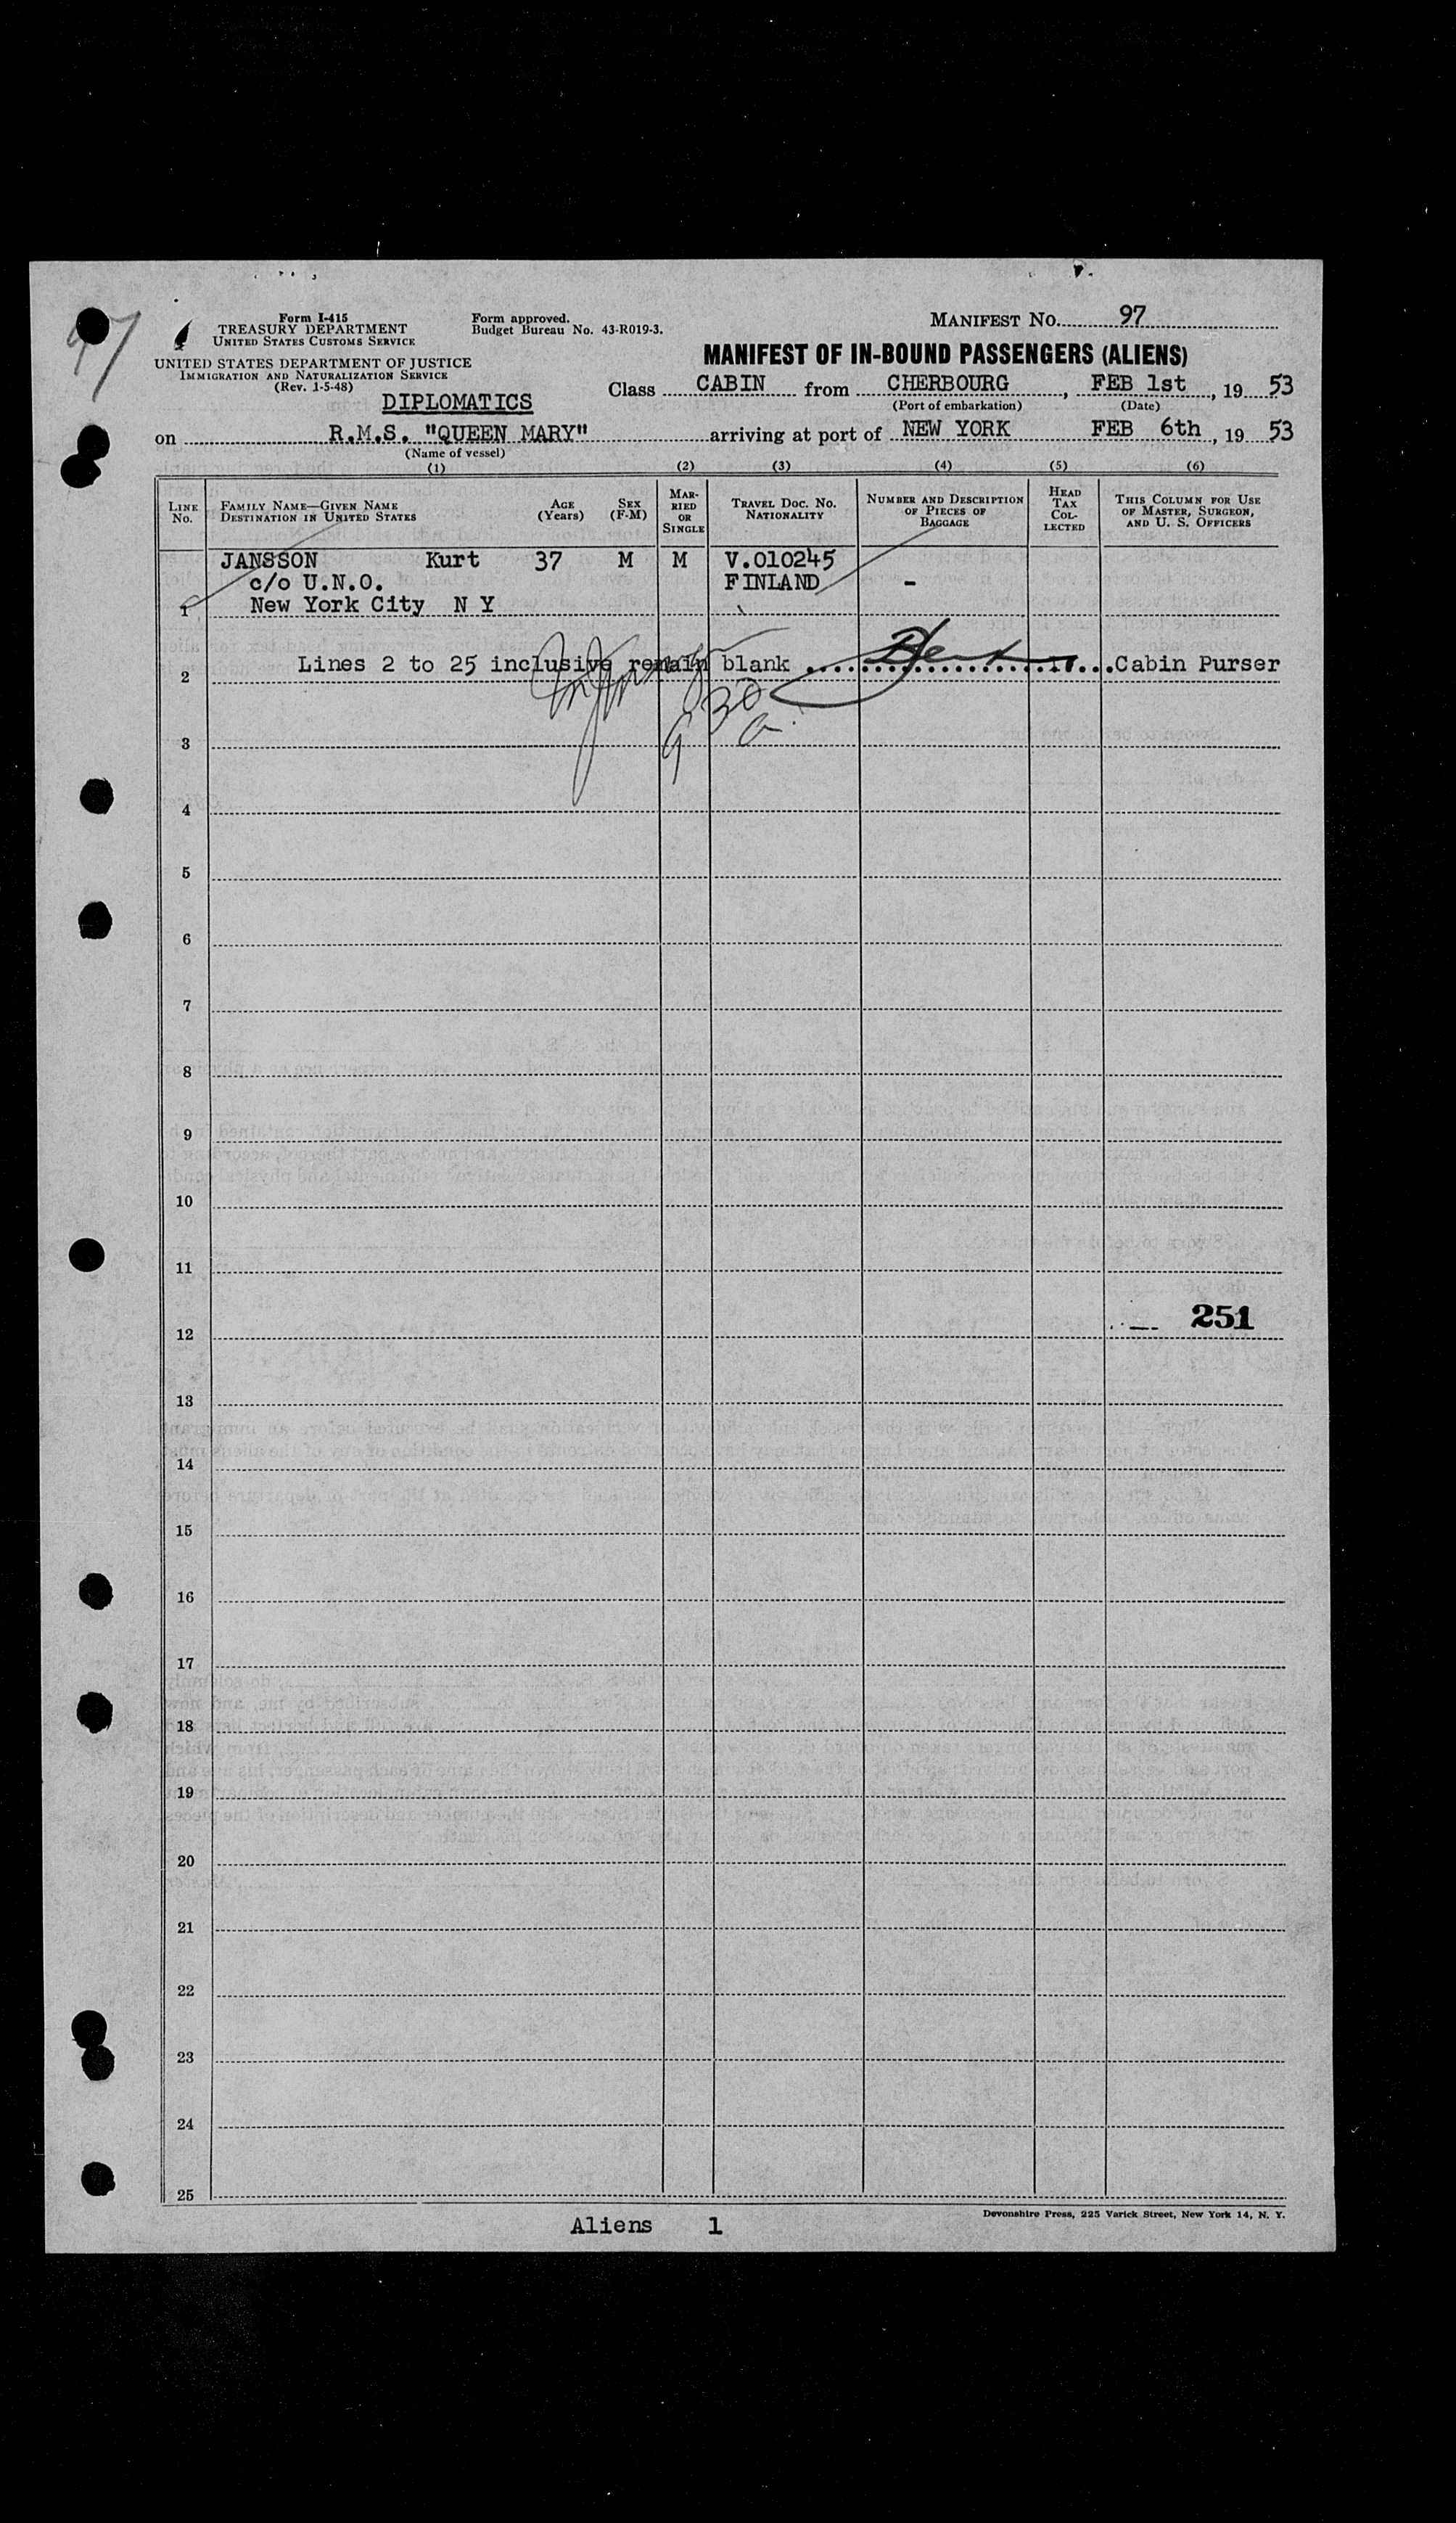 97
Form I-415
TREASURY DEPARTMENT
UNITED STATES CUSTOMS SERVICE
Form approved.
Budget Bureau No. 43-R019-3.
MANIFEST NO. 97
UNITED STATES DEPARTMENT OF JUSTICE
IMMIGRATION AND NATURALIZATION SERVICE
(Rev. 1-5-48)
MANIFEST OF IN-BOUND PASSENGERS (ALIENS)
DIPLOMATICS
Class CABIN from CHERBOURG, FEB 1st, 19 53
(Port of embarkation) (Date)
on R.M.S. "QUEEN MARY" arriving at port of NEW YORK FEB 6th, 19 53
(Name of vessel)
(1) (2) (3) (4) (5) (6)
LINE NO. FAMILY NAME—GIVEN NAME DESTINATION IN UNITED STATES AGE (Years) SEX (F-M) MARRIED OR SINGLE TRAVEL DOC. NO. NATIONALITY NUMBER AND DESCRIPTION OF PIECES OF BAGGAGE HEAD TAX COLLECTED THIS COLUMN FOR USE OF MASTER, SURGEON, AND U. S. OFFICERS
JANSSON Kurt 37 M M V.010245
c/o U.N.O. FINLAND -
1 New York City N Y
2 Lines 2 to 25 inclusive remain blank Cabin Purser
9 30 a
3
4
5
6
7
8
9
10
11
12 251
13
14
15
16
17
18
19
20
21
22
23
24
25
Devonshire Press, 225 Varick Street, New York 14, N. Y.
Aliens 1